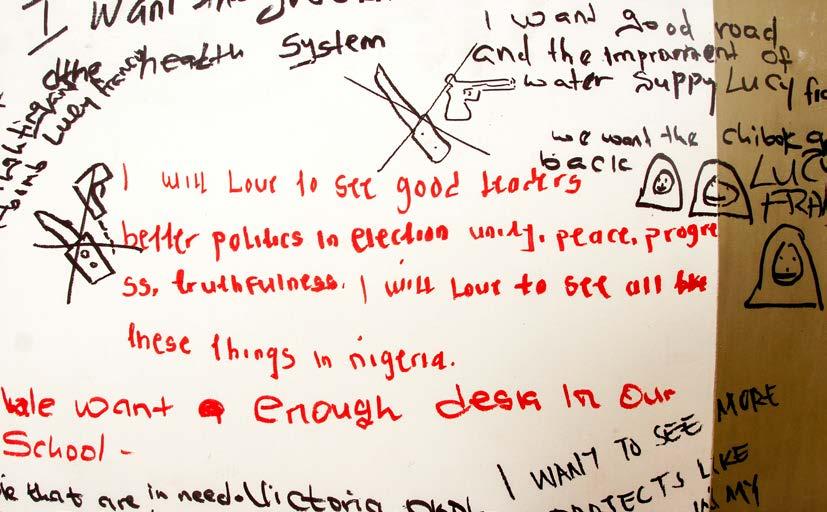 I want
health System
Lucy Francis
I want good road
and the improment of
water supply Lucy fra
we want the chibok g
back
LUCY
FRA
I will Love to see good leaders
better politics in election unity, peace, progre
ss, truthfulness. I will Love to see all
these things in nigeria.
want a enough desk in Our
School -
that are in need. Victoria
I WANT TO SEE MORE
PROTECTS LIKE
MY